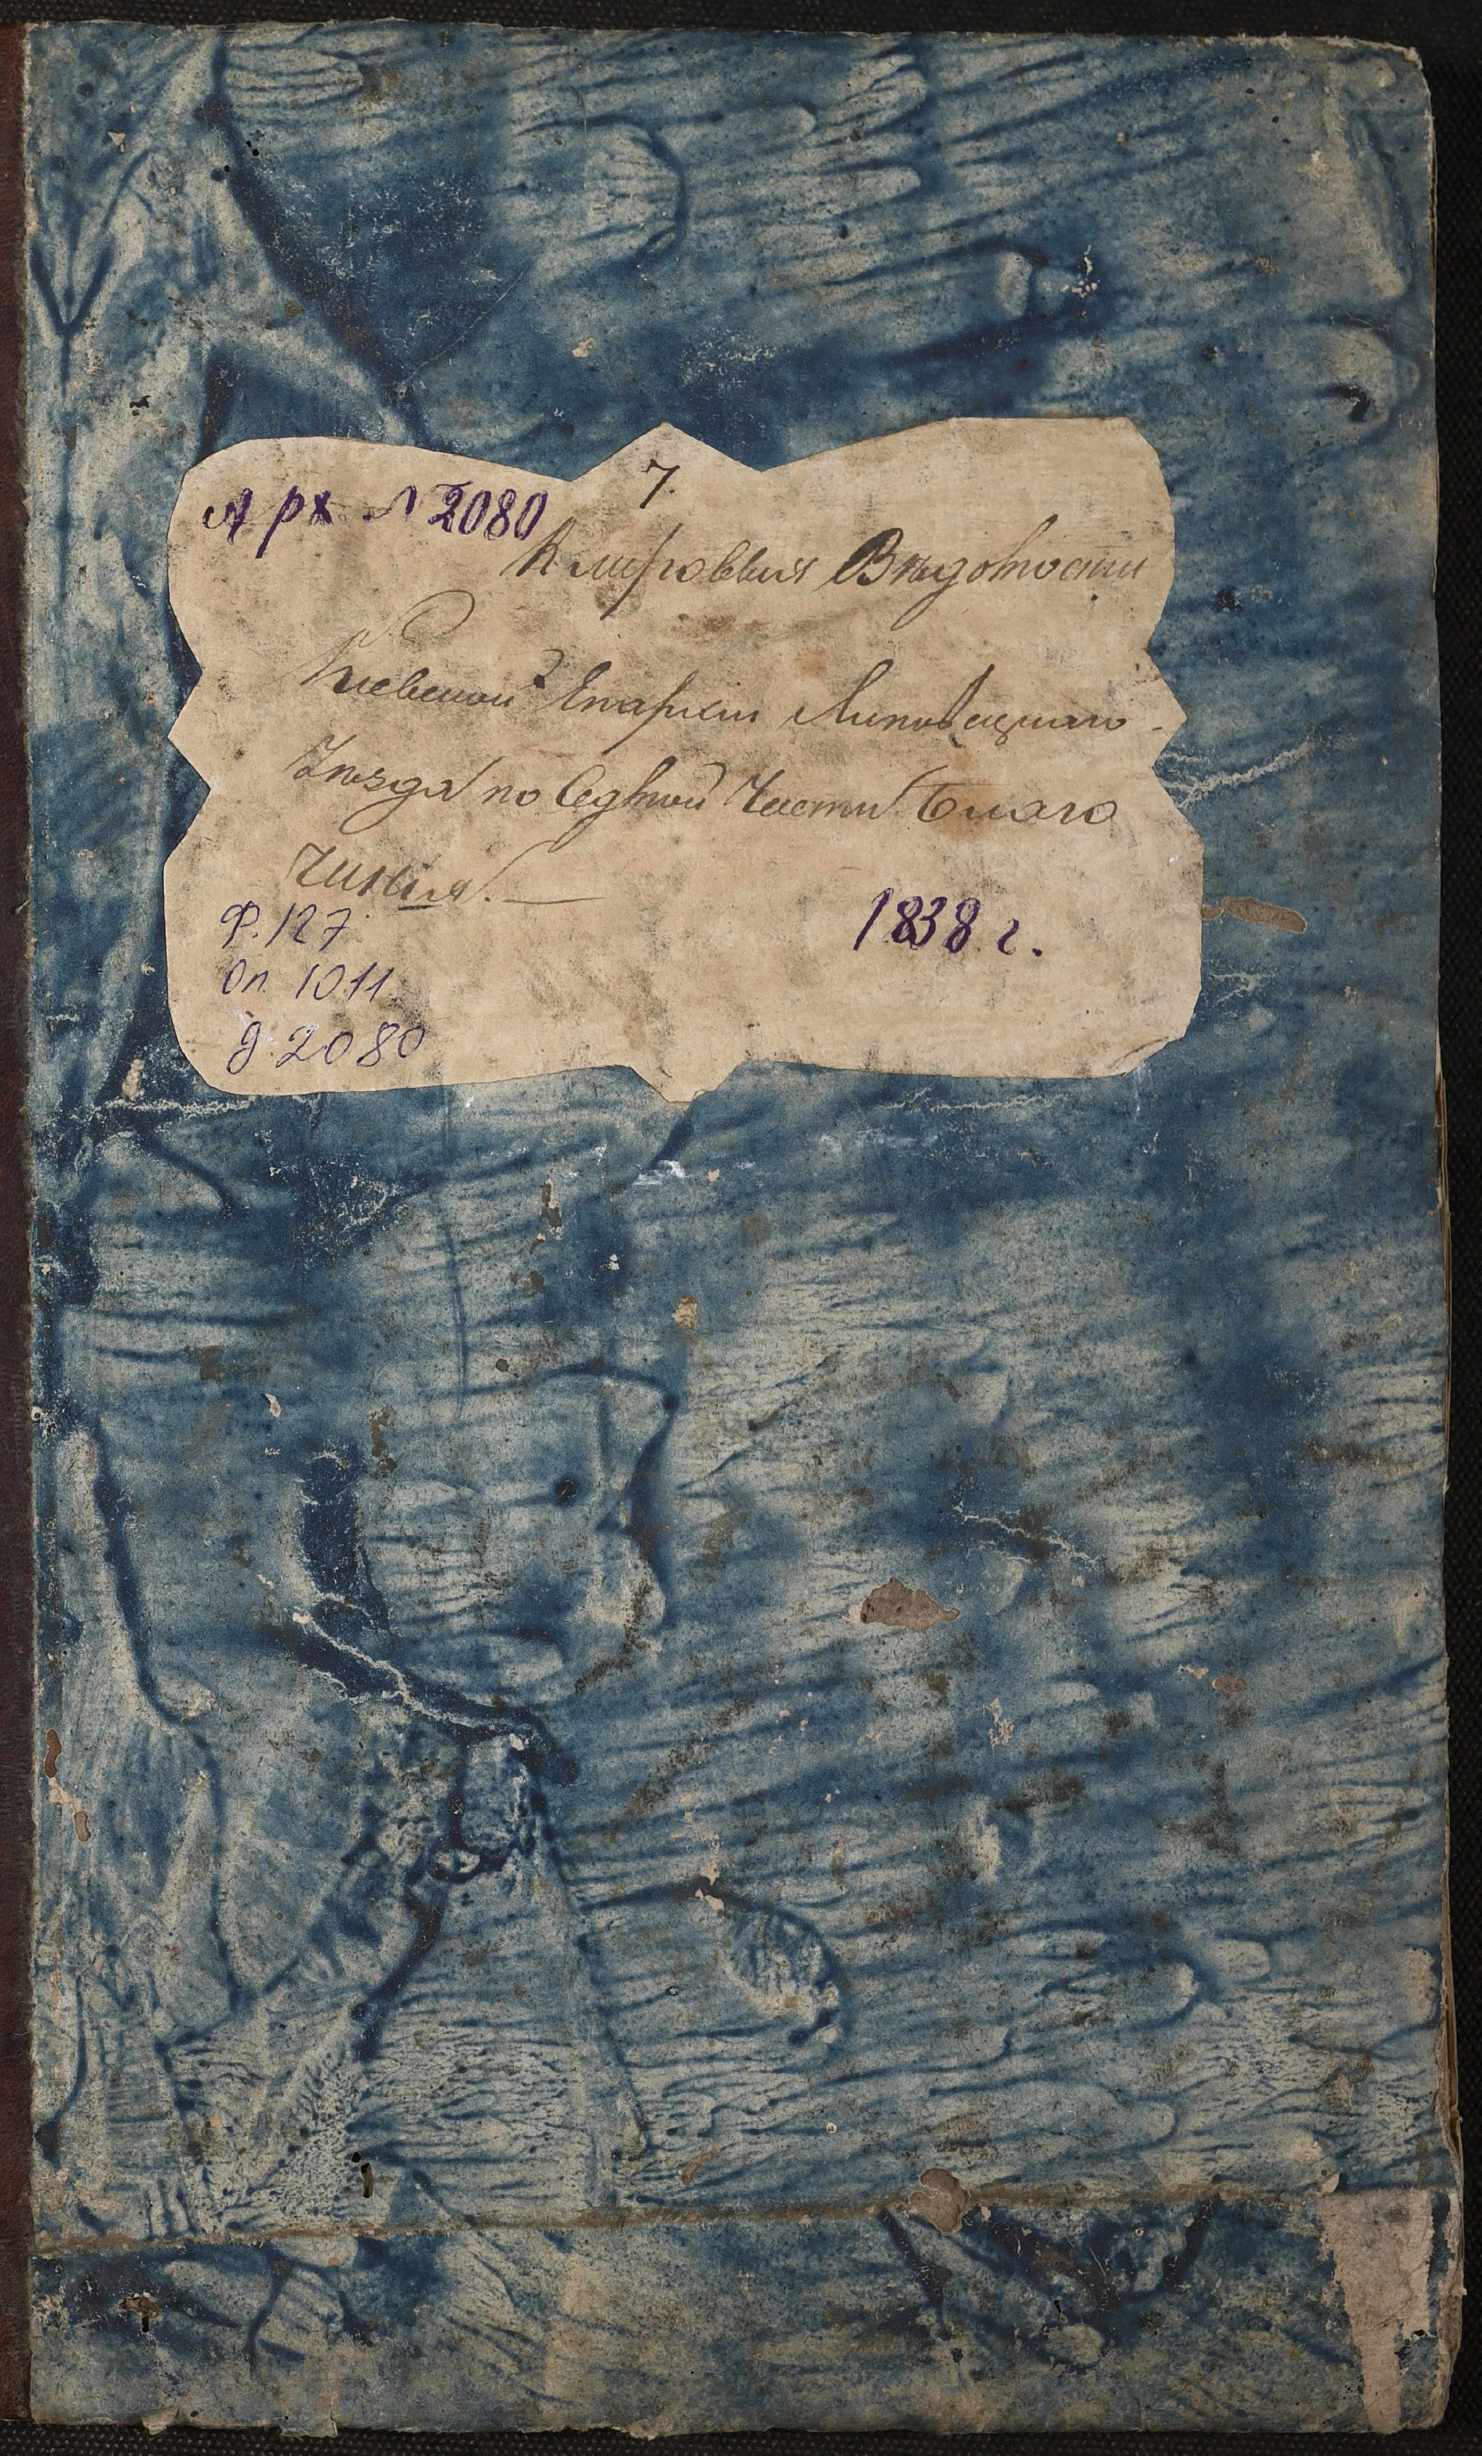 7.
Арх № 2080
Клировыя Вѣдомости
Киевской Епархіи Липовецкаго
Уѣзда по Седмой Части Благо
чинія.
1838 г.
Ф. 127
Оп. 1011
д. 2080